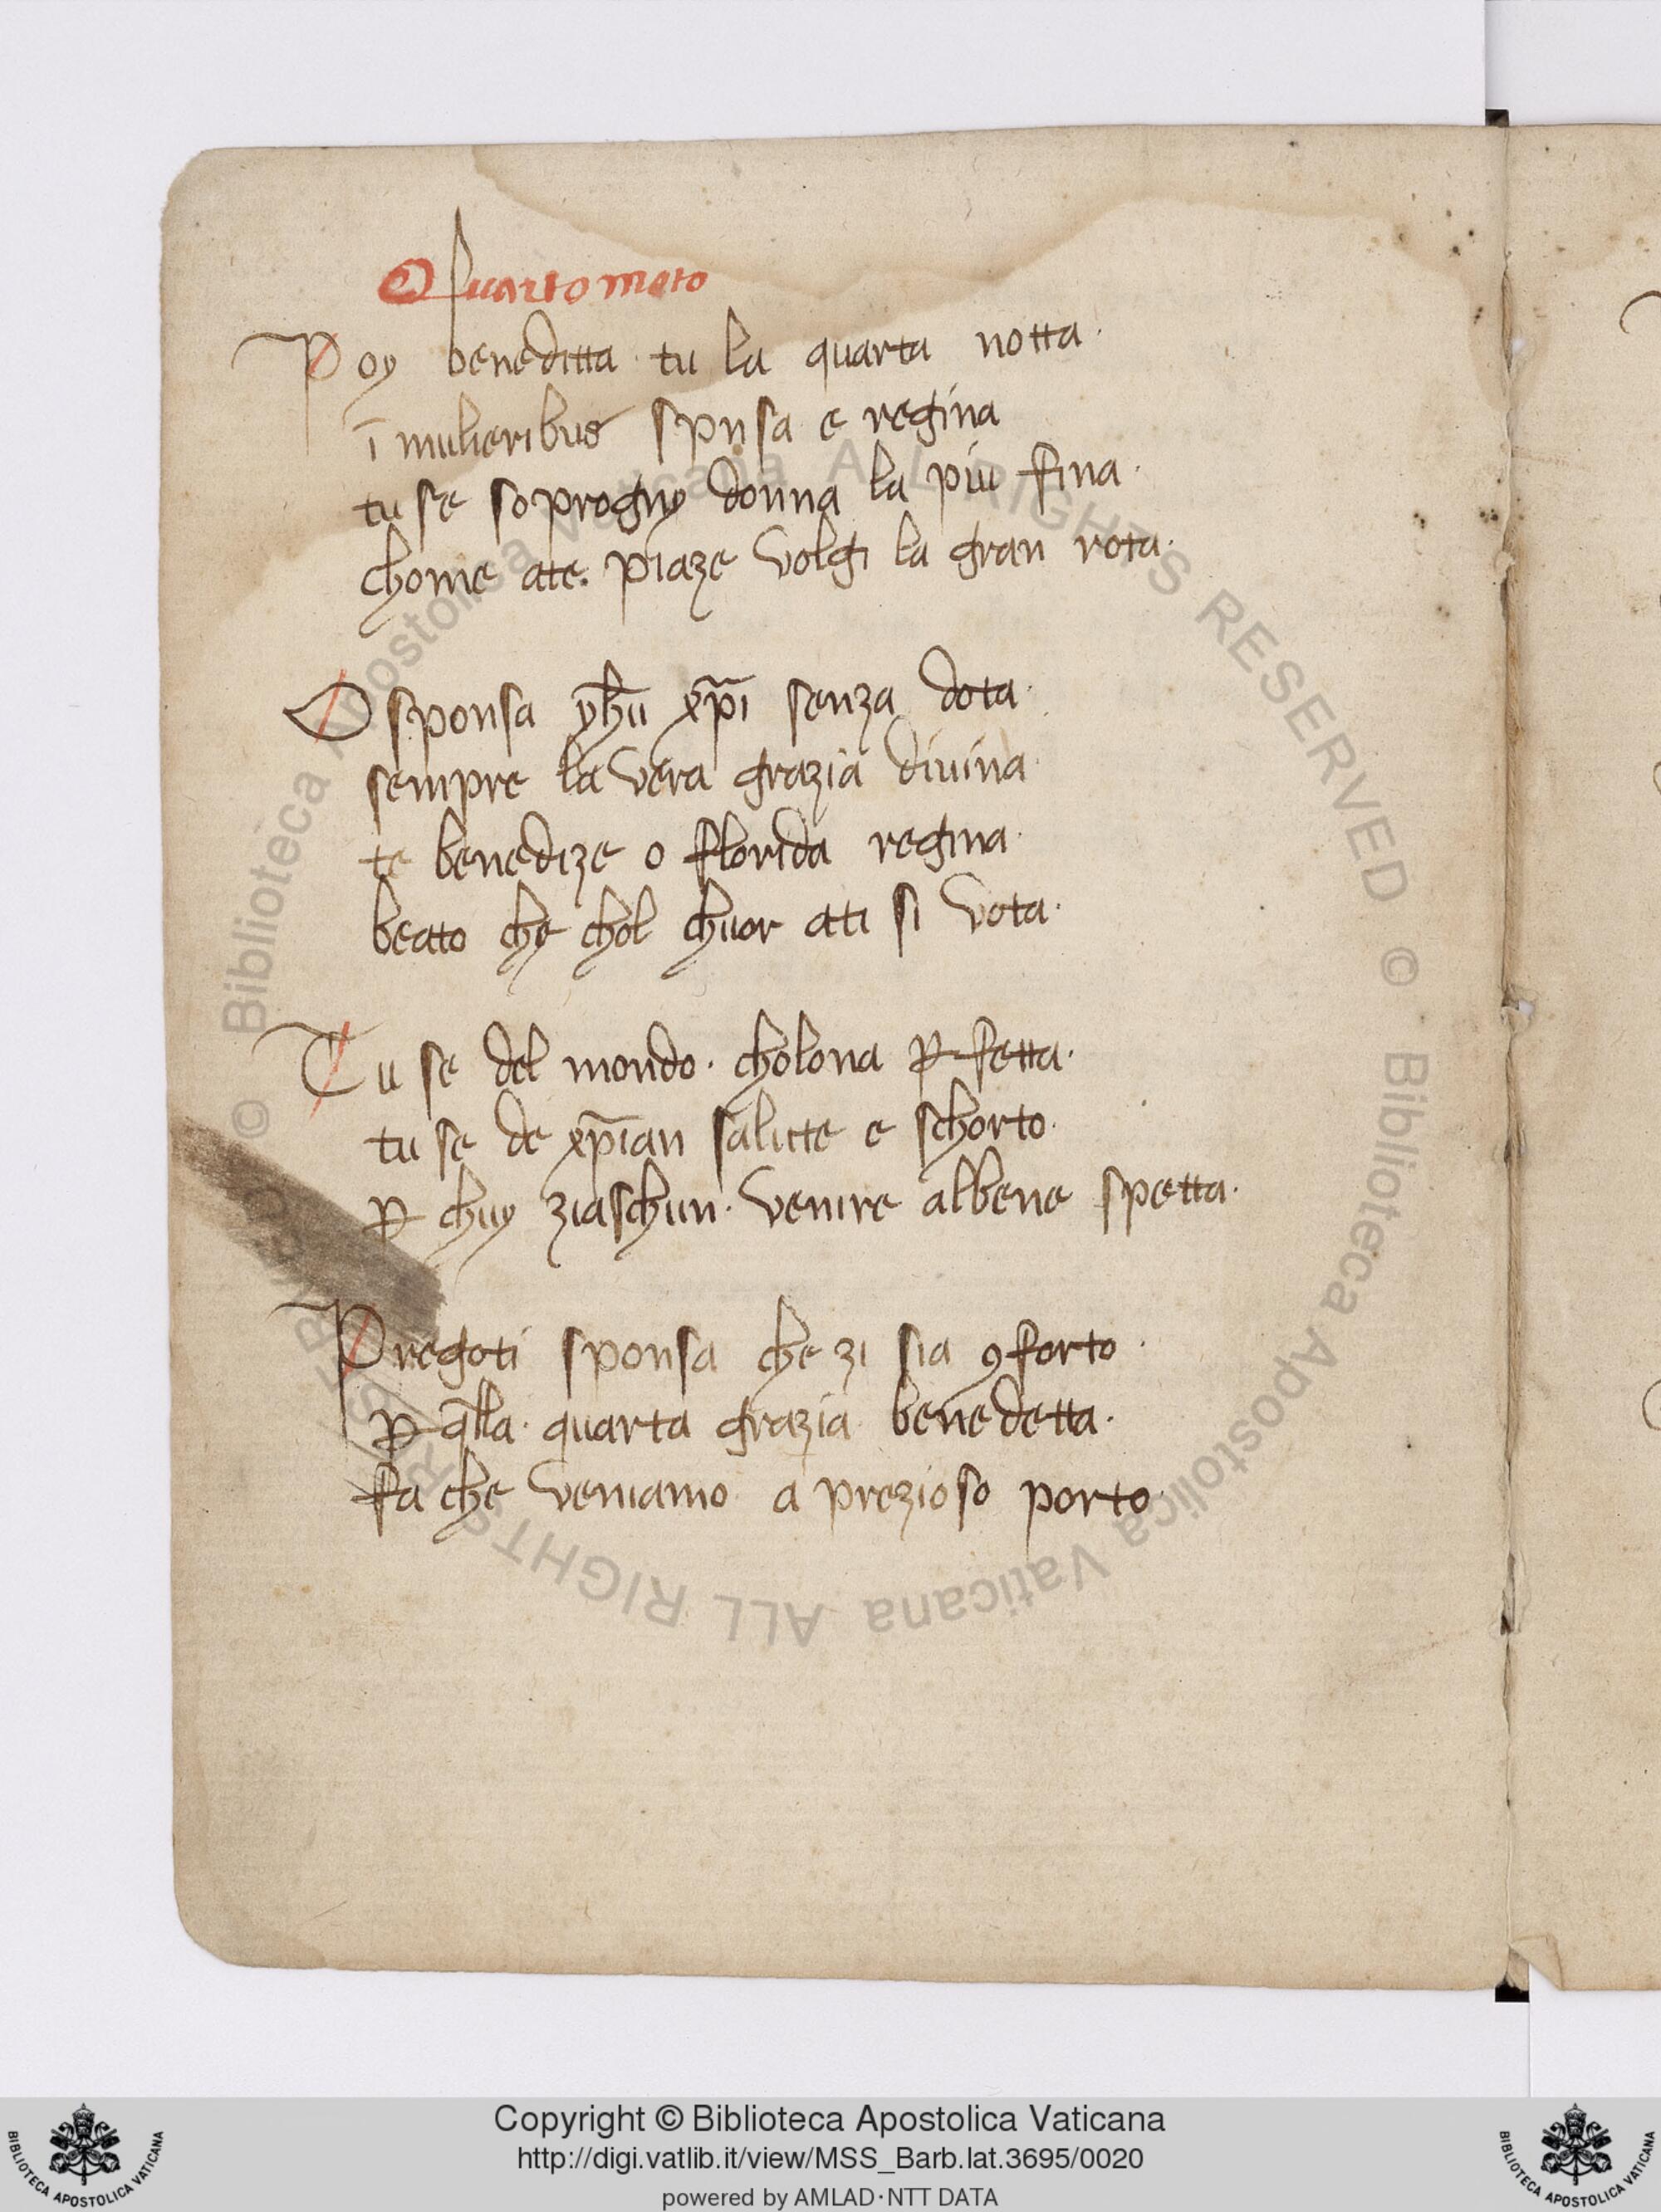 Quarto moto
Poy beneditta tu la quarta notta·
ī mulieribus spnsa e regina
tu se soprogny donna la piu fina·
chome ate· piaze volgi la gran rota·
O sponsa yhū xp̄i senza dota·
sempre la vera grazia diuina·
te benedize o florida regina·
beato che chol chuor ati si vota·
Tu se del mondo· cholona ꝑfetta·
tu se de xp̄ian salutte e schorto·
ꝑ chuy ziaschun· venire albene spetta·
Pregoti sponsa che zi sia ꝯforto·
ꝑ q̄lla· quarta grazia benedetta·
fa che veniamo a prezioso porto·
© Biblioteca Apostolica Vaticana ALL RIGHTS RESERVED © Biblioteca Apostolica Vaticana ALL RIGHTS
Copyright © Biblioteca Apostolica Vaticana
http://digi.vatlib.it/view/MSS_Barb.lat.3695/0020
powered by AMLAD·NTT DATA
BIBLIOTECA APOSTOLICA VATICANA
BIBLIOTECA APOSTOLICA VATICANA